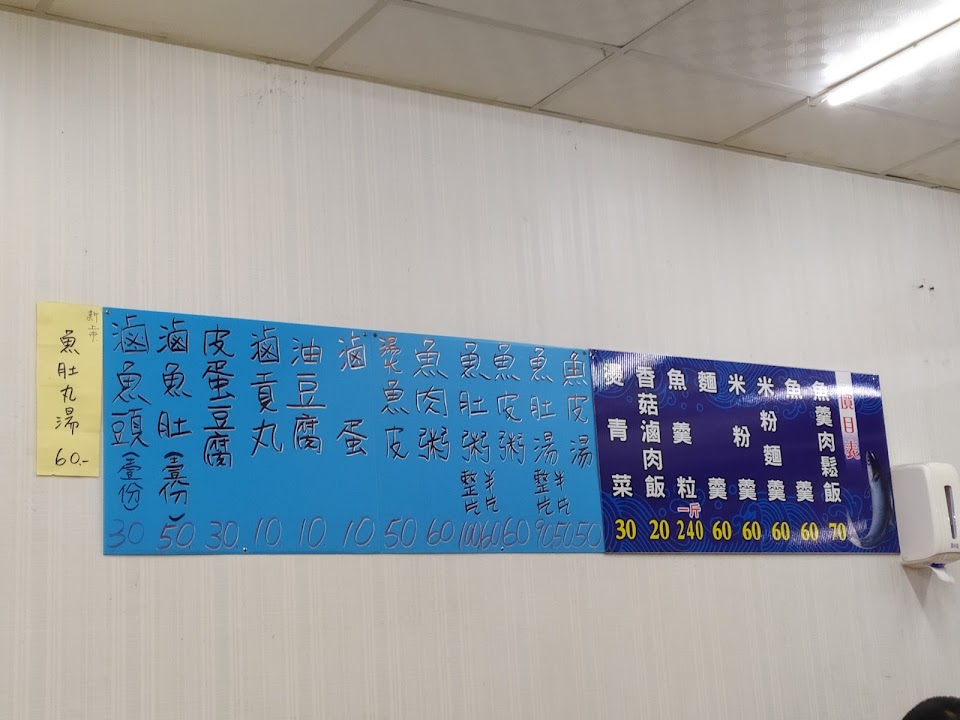 價目表
魚羹肉鬆飯 70
魚羹 60
米粉麵羹 60
米粉羹 60
麵羹 60
魚羹粒 一斤 240
香菇滷肉飯 20
燙青菜 30
魚皮湯 50
魚肚湯 半片 50 整片 90
魚皮粥 60
魚肚粥 半片 60 整片 100
魚肉粥 60
燙魚皮 50
滷蛋 10
油豆腐 10
滷貢丸 10
皮蛋豆腐 30
滷魚肚(壹份) 50
滷魚頭(壹份) 30
新上市
魚肚丸湯 60.-